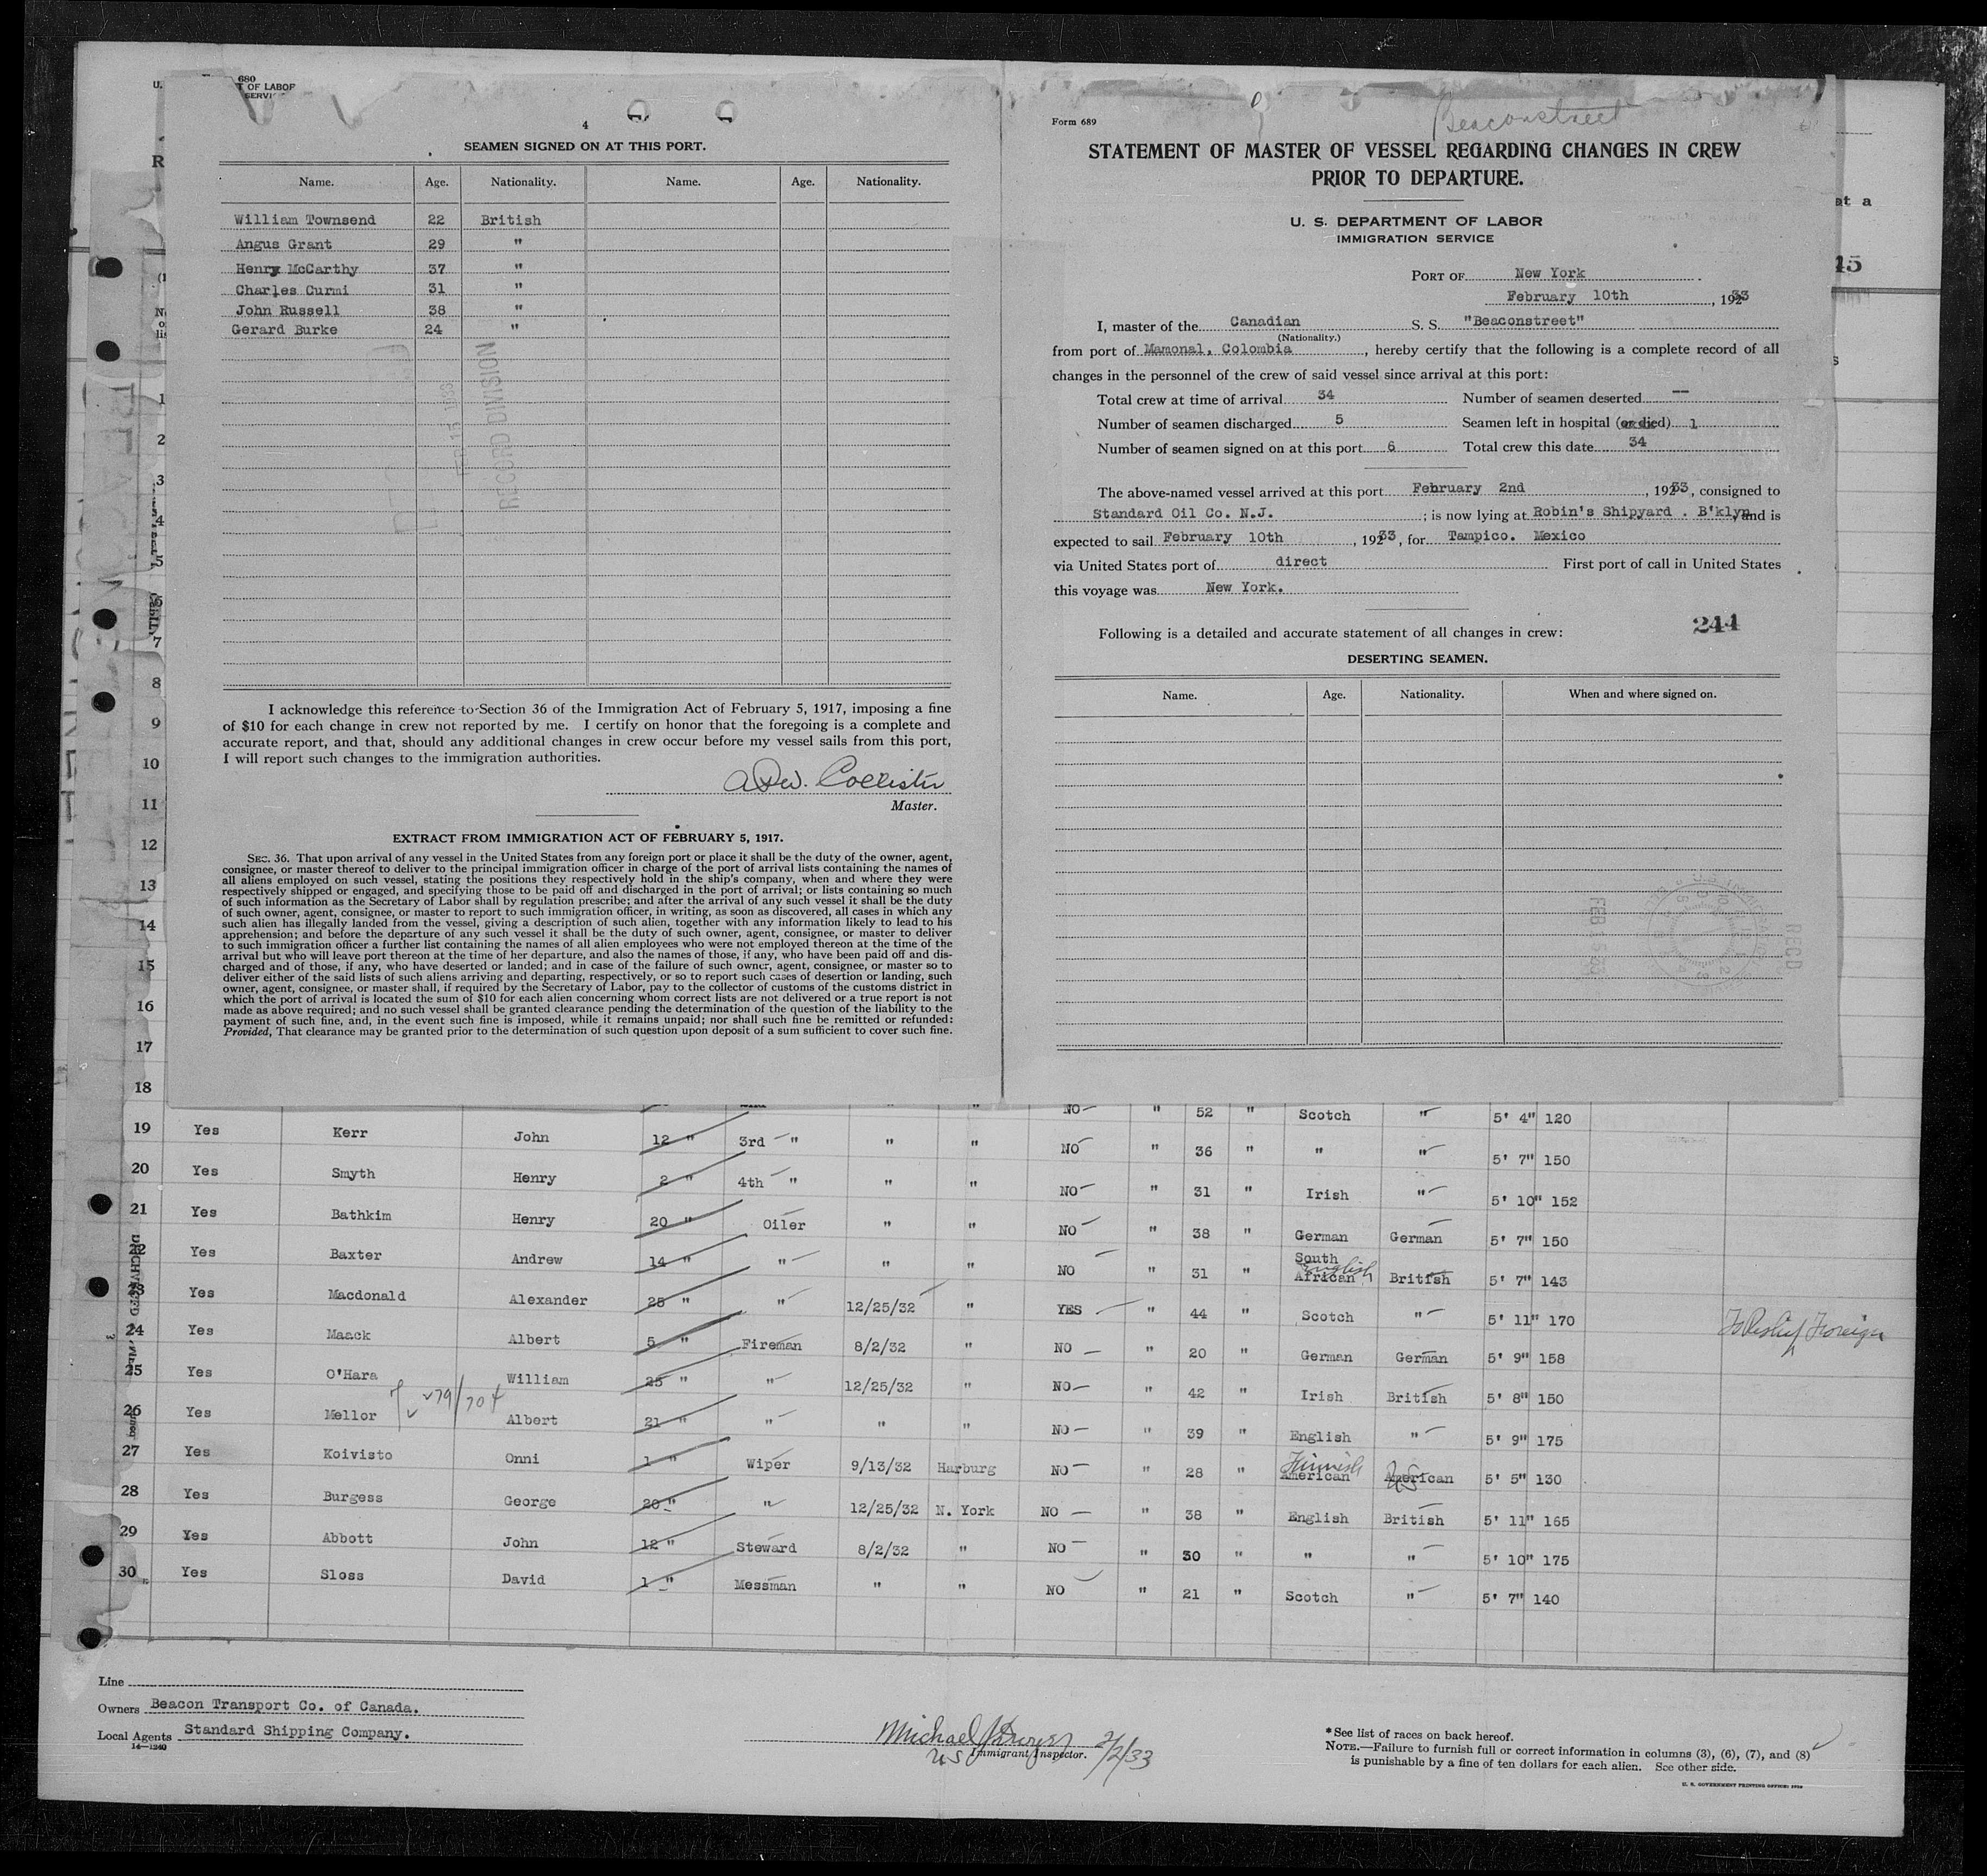 680
U.
T OF LABOR
SERVI
4
SEAMEN SIGNED ON AT THIS PORT.
Name. Age. Nationality. Name. Age. Nationality.
William Townsend 22 British
Angus Grant 29 "
Henry McCarthy 37 "
Charles Curmi 31 "
John Russell 38 "
Gerard Burke 24 "
RECORD DIVISION
I acknowledge this reference to Section 36 of the Immigration Act of February 5, 1917, imposing a fine
of $10 for each change in crew not reported by me. I certify on honor that the foregoing is a complete and
accurate report, and that, should any additional changes in crew occur before my vessel sails from this port,
I will report such changes to the immigration authorities.
Collister
Master.
EXTRACT FROM IMMIGRATION ACT OF FEBRUARY 5, 1917.
SEC. 36. That upon arrival of any vessel in the United States from any foreign port or place it shall be the duty of the owner, agent,
consignee, or master thereof to deliver to the principal immigration officer in charge of the port of arrival lists containing the names of
all aliens employed on such vessel, stating the positions they respectively hold in the ship's company, when and where they were
respectively shipped or engaged, and specifying those to be paid off and discharged in the port of arrival; or lists containing so much
of such information as the Secretary of Labor shall by regulation prescribe; and after the arrival of any such vessel it shall be the duty
of such owner, agent, consignee, or master to report to such immigration officer, in writing, as soon as discovered, all cases in which any
such alien has illegally landed from the vessel, giving a description of such alien, together with any information likely to lead to his
apprehension; and before the departure of any such vessel it shall be the duty of such owner, agent, consignee, or master to deliver
to such immigration officer a further list containing the names of all alien employees who were not employed thereon at the time of the
arrival but who will leave port thereon at the time of her departure, and also the names of those, if any, who have been paid off and dis-
charged and of those, if any, who have deserted or landed; and in case of the failure of such owner, agent, consignee, or master so to
deliver either of the said lists of such aliens arriving and departing, respectively, or so to report such cases of desertion or landing, such
owner, agent, consignee, or master shall, if required by the Secretary of Labor, pay to the collector of customs of the customs district in
which the port of arrival is located the sum of $10 for each alien concerning whom correct lists are not delivered or a true report is not
made as above required; and no such vessel shall be granted clearance pending the determination of the question of the liability to the
payment of such fine, and, in the event such fine is imposed, while it remains unpaid; nor shall such fine be remitted or refunded:
Provided, That clearance may be granted prior to the determination of such question upon deposit of a sum sufficient to cover such fine.
Form 689
Beaconstreet
STATEMENT OF MASTER OF VESSEL REGARDING CHANGES IN CREW
PRIOR TO DEPARTURE.
U. S. DEPARTMENT OF LABOR
IMMIGRATION SERVICE
PORT OF New York
February 10th, 1933
I, master of the Canadian S. S. "Beaconstreet"
(Nationality.)
from port of Mamonal, Colombia, hereby certify that the following is a complete record of all
changes in the personnel of the crew of said vessel since arrival at this port:
Total crew at time of arrival 34 Number of seamen deserted --
Number of seamen discharged 5 Seamen left in hospital (or died) 1
Number of seamen signed on at this port 6 Total crew this date 34
The above-named vessel arrived at this port February 2nd, 1933, consigned to
Standard Oil Co. N.J.; is now lying at Robin's Shipyard . B'klyn and is
expected to sail February 10th, 1933, for Tampico. Mexico
via United States port of direct First port of call in United States
this voyage was New York.
244
Following is a detailed and accurate statement of all changes in crew:
DESERTING SEAMEN.
Name. Age. Nationality. When and where signed on.
RECD
at a
45
1
2
3
4
5
6
7
8
9
10
11
12
13
14
15
16
17
18
NO " 52 " Scotch " 5' 4" 120
19 Yes Kerr John 12 " 3rd " " " NO " 36 " " " 5' 7" 150
20 Yes Smyth Henry 2 " 4th " " " NO " 31 " Irish " 5' 10" 152
21 Yes Bathkim Henry 20 " Oiler " " NO " 38 " German German 5' 7" 150
22 Yes Baxter Andrew 14 " " " " NO " 31 " South African English British 5' 7" 143
23 Yes Macdonald Alexander 25 " " 12/25/32 " YES " 44 " Scotch " 5' 11" 170
24 Yes Maack Albert 5 " Fireman 8/2/32 " NO " 20 " German German 5' 9" 158
25 Yes O'Hara William 25 " " 12/25/32 " NO " 42 " Irish British 5' 8" 150
26 Yes Mellor Albert 21 " " " " NO " 39 " English " 5' 9" 175
27 Yes Koivisto Onni 1 " Wiper 9/13/32 Harburg NO " 28 " American Finnish American US 5' 5" 130
28 Yes Burgess George 20 " " 12/25/32 N. York NO " 38 " English British 5' 11" 165
29 Yes Abbott John 12 " Steward 8/2/32 " NO " 30 " " " 5' 10" 175
30 Yes Sloss David 1 " Messman " " NO " 21 " Scotch " 5' 7" 140
Line
Owners Beacon Transport Co. of Canada.
Local Agents Standard Shipping Company.
14—1240
Michael
US Immigrant Inspector. 2/2/33
*See list of races on back hereof.
NOTE.—Failure to furnish full or correct information in columns (3), (6), (7), and (8)
is punishable by a fine of ten dollars for each alien. See other side.
U. S. GOVERNMENT PRINTING OFFICE: